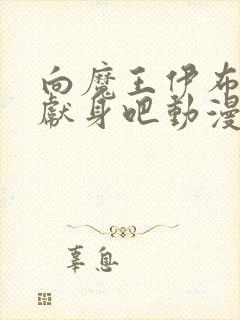 向魔王伊布
獻身吧動漫
辜息